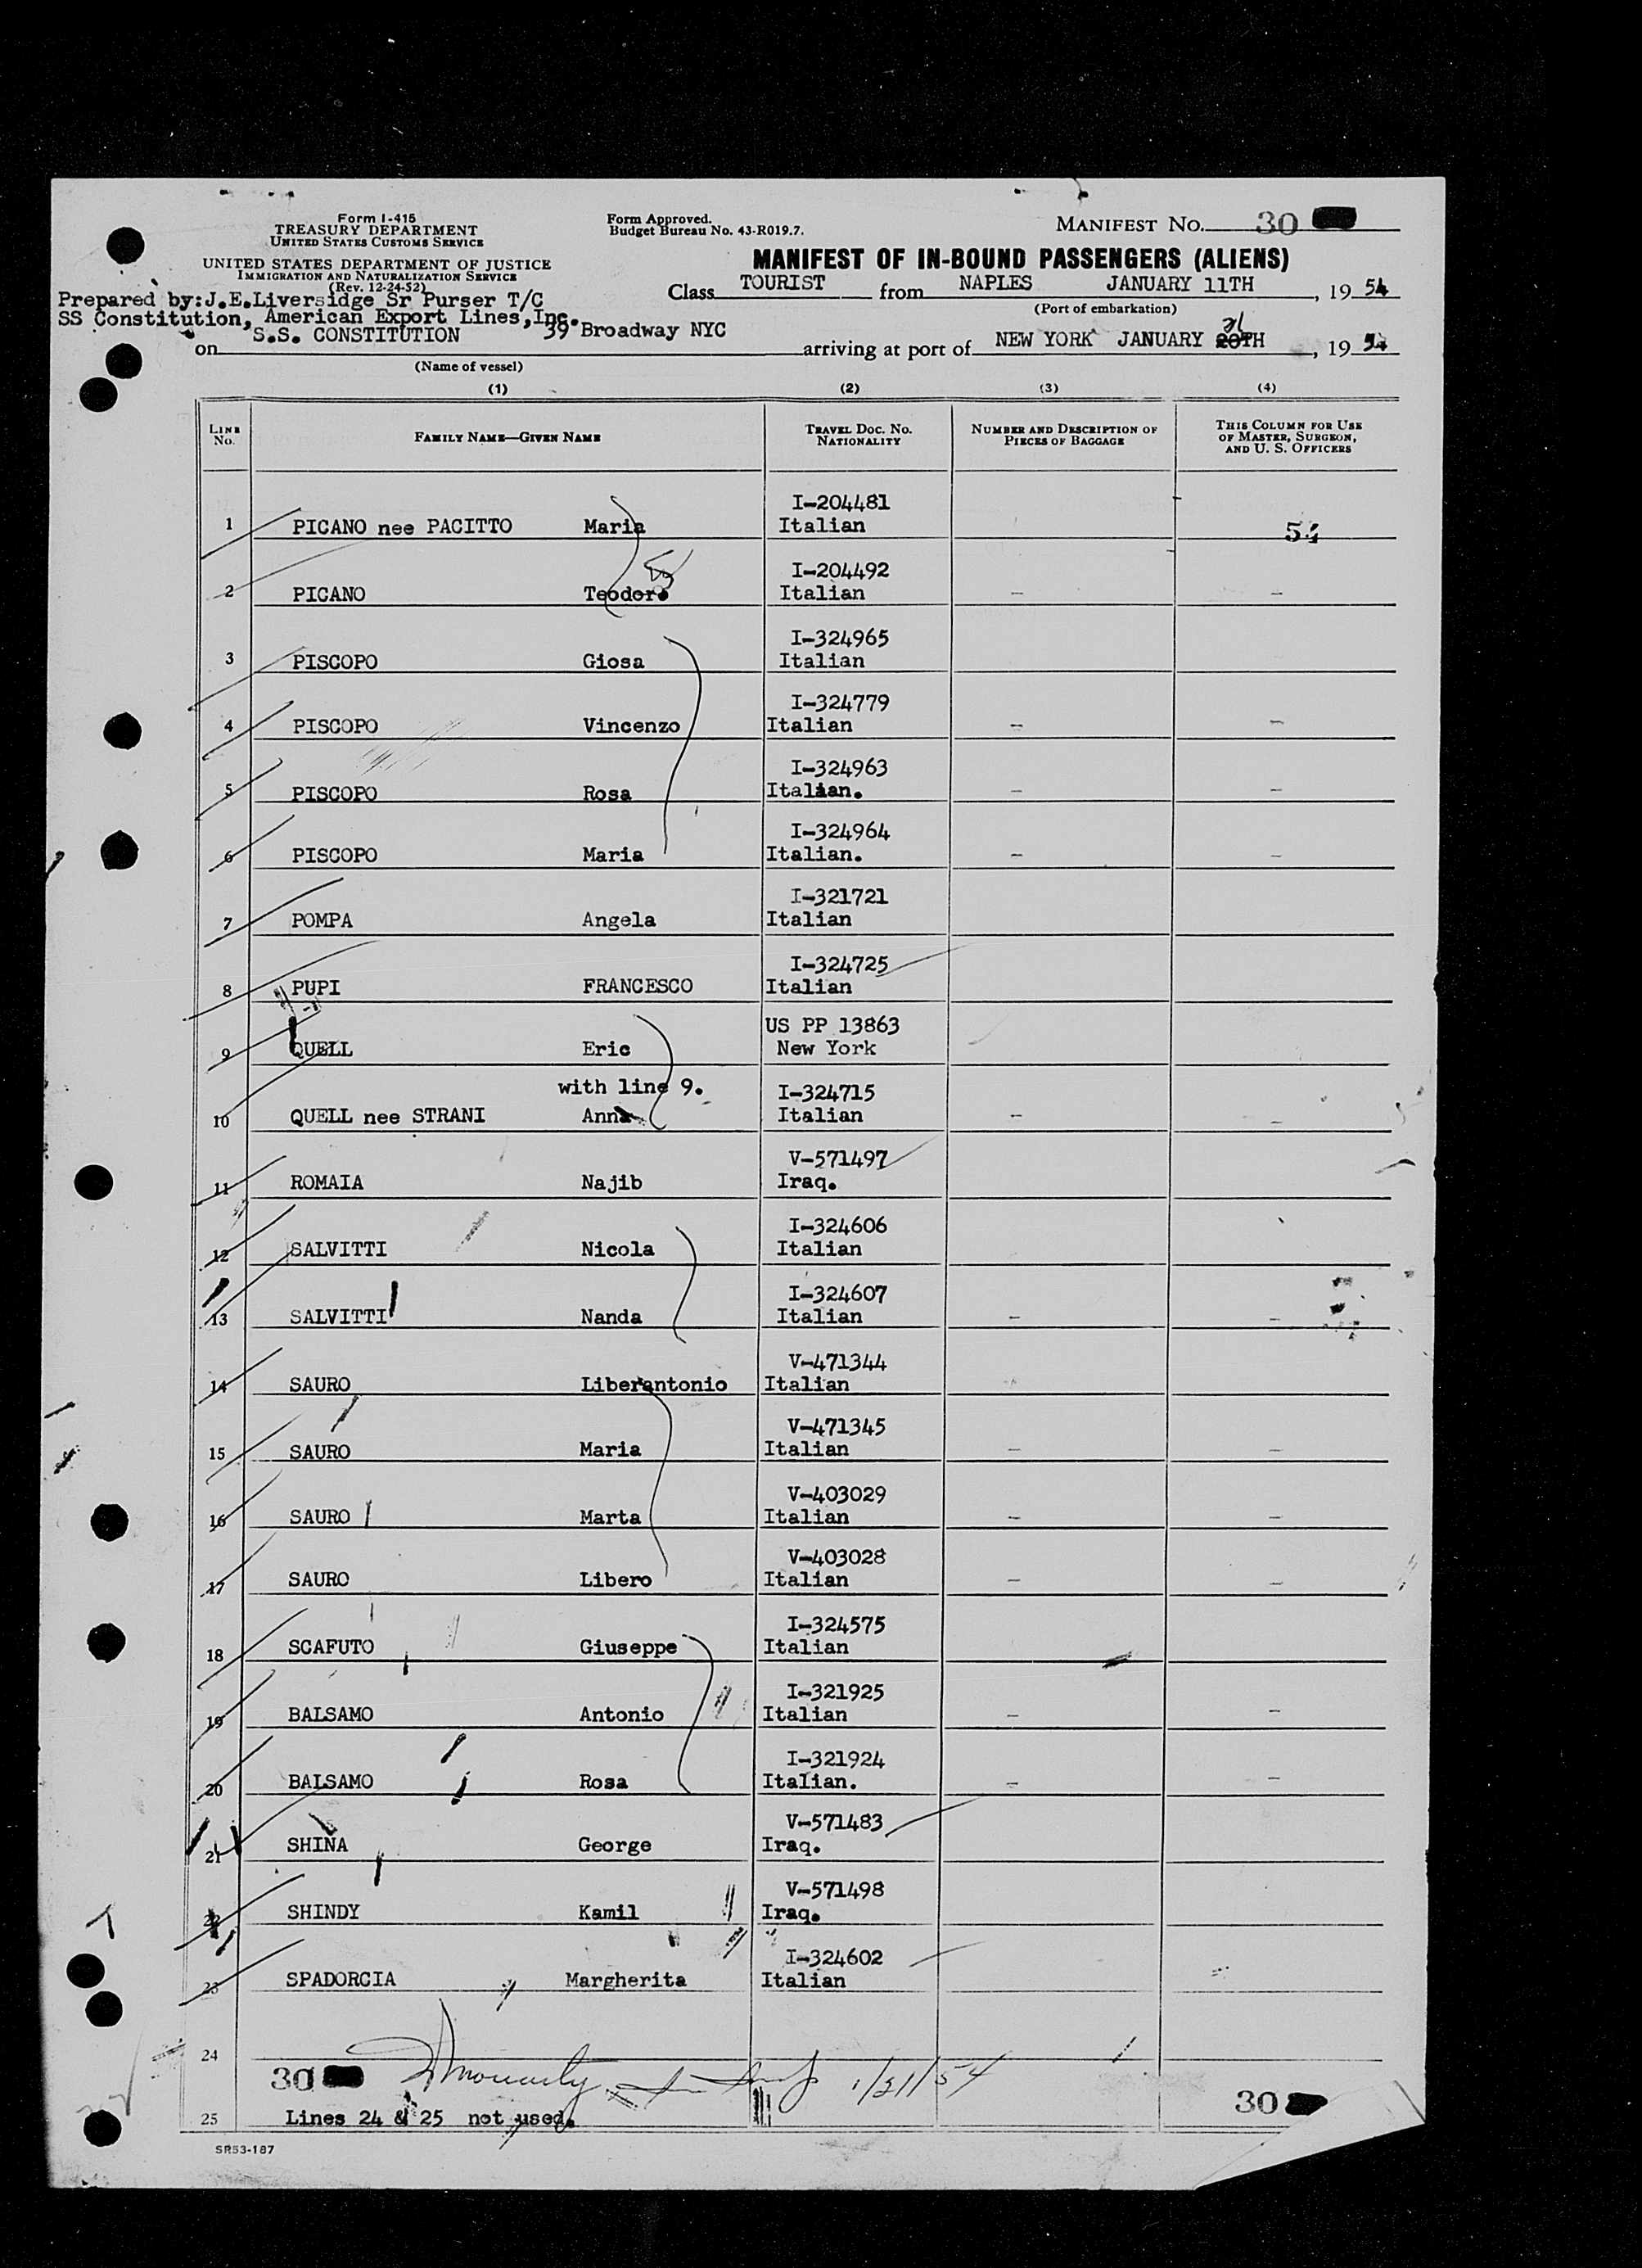 Form I-415
TREASURY DEPARTMENT
UNITED STATES CUSTOMS SERVICE
UNITED STATES DEPARTMENT OF JUSTICE
IMMIGRATION AND NATURALIZATION SERVICE
(Rev. 12-24-52)
Form Approved.
Budget Bureau No. 43-R019.7.
MANIFEST NO. 30
MANIFEST OF IN-BOUND PASSENGERS (ALIENS)
Prepared by:J.E.Liversidge Sr Purser T/C
SS Constitution, American Export Lines,Inc.
39 Broadway NYC
Class TOURIST from NAPLES JANUARY 11TH, 1954
(Port of embarkation)
on S.S. CONSTITUTION arriving at port of NEW YORK JANUARY 20TH 21, 1954
(Name of vessel)
(1) (2) (3) (4)
LINE NO. FAMILY NAME—GIVEN NAME TRAVEL DOC. NO. NATIONALITY NUMBER AND DESCRIPTION OF PIECES OF BAGGAGE THIS COLUMN FOR USE OF MASTER, SURGEON, AND U. S. OFFICERS
I-204481
1 PICANO nee PACITTO Maria Italian 54
I-204492
2 PICANO Teodoro Italian – –
I-324965
3 PISCOPO Giosa Italian
I-324779
4 PISCOPO Vincenzo Italian – –
I-324963
5 PISCOPO Rosa Italian. – –
I-324964
6 PISCOPO Maria Italian. – –
I-321721
7 POMPA Angela Italian
I-324725
8 PUPI FRANCESCO Italian
US PP 13863
9 QUELL Eric New York
with line 9. I-324715
10 QUELL nee STRANI Anna Italian – –
V-571497
11 ROMAIA Najib Iraq.
I-324606
12 SALVITTI Nicola Italian
I-324607
13 SALVITTI Nanda Italian – –
V-471344
14 SAURO Liberantonio Italian
V-471345
15 SAURO Maria Italian – –
V-403029
16 SAURO Marta Italian – –
V-403028
17 SAURO Libero Italian – –
I-324575
18 SCAFUTO Giuseppe Italian
I-321925
19 BALSAMO Antonio Italian – –
I-321924
20 BALSAMO Rosa Italian. – –
V-571483
21 SHINA George Iraq.
V-571498
22 SHINDY Kamil Iraq.
I-324602
23 SPADORCIA Margherita Italian
24
30 1/21/54 30
25 Lines 24 & 25 not used.
SR53-187